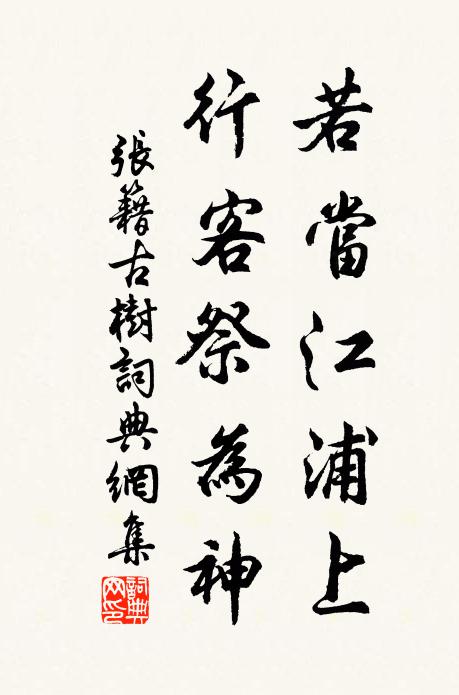 若當江浦上
行客祭為神
張籍古樹詞典網集
詞典網印